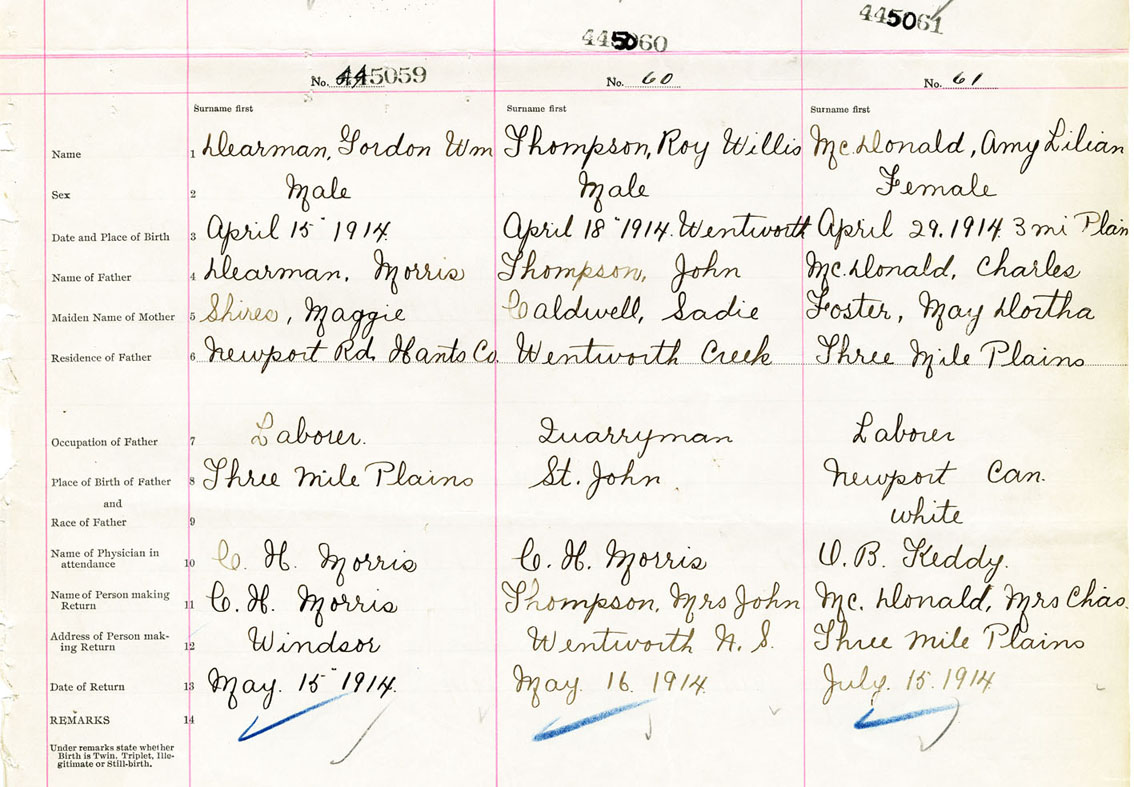 445061
445060
No. 445059 No. 60 No. 61
Surname first Surname first Surname first
Name 1 Dearman, Gordon Wm Thompson, Roy Willis Mc.Donald, Amy Lilian
Sex 2 Male Male Female
Date and Place of Birth 3 April 15" 1914. April 18" 1914. Wentworth April 29. 1914 3 mi Plain
Name of Father 4 Dearman, Morris Thompson, John Mc.Donald, Charles
Maiden Name of Mother 5 Shires, Maggie Caldwell, Sadie Foster, May Dortha
Residence of Father 6 Newport Rd. Hants Co. Wentworth Creek Three Mile Plains
Occupation of Father 7 Laborer. Quarryman Laborer
Place of Birth of Father 8 Three Mile Plains St. John Newport Can.
and
Race of Father 9 white
Name of Physician in
attendance 10 C. H. Morris C. H. Morris O. B. Keddy.
Name of Person making
Return 11 C. H. Morris Thompson, Mrs John Mc. Donald, Mrs Chas.
Address of Person mak-
ing Return 12 Windsor Wentworth N. S. Three Mile Plains
Date of Return 13 May. 15" 1914. May 16. 1914 July. 15. 1914
REMARKS 14
Under remarks state whether
Birth is Twin, Triplet, Ille-
gitimate or Still-birth.